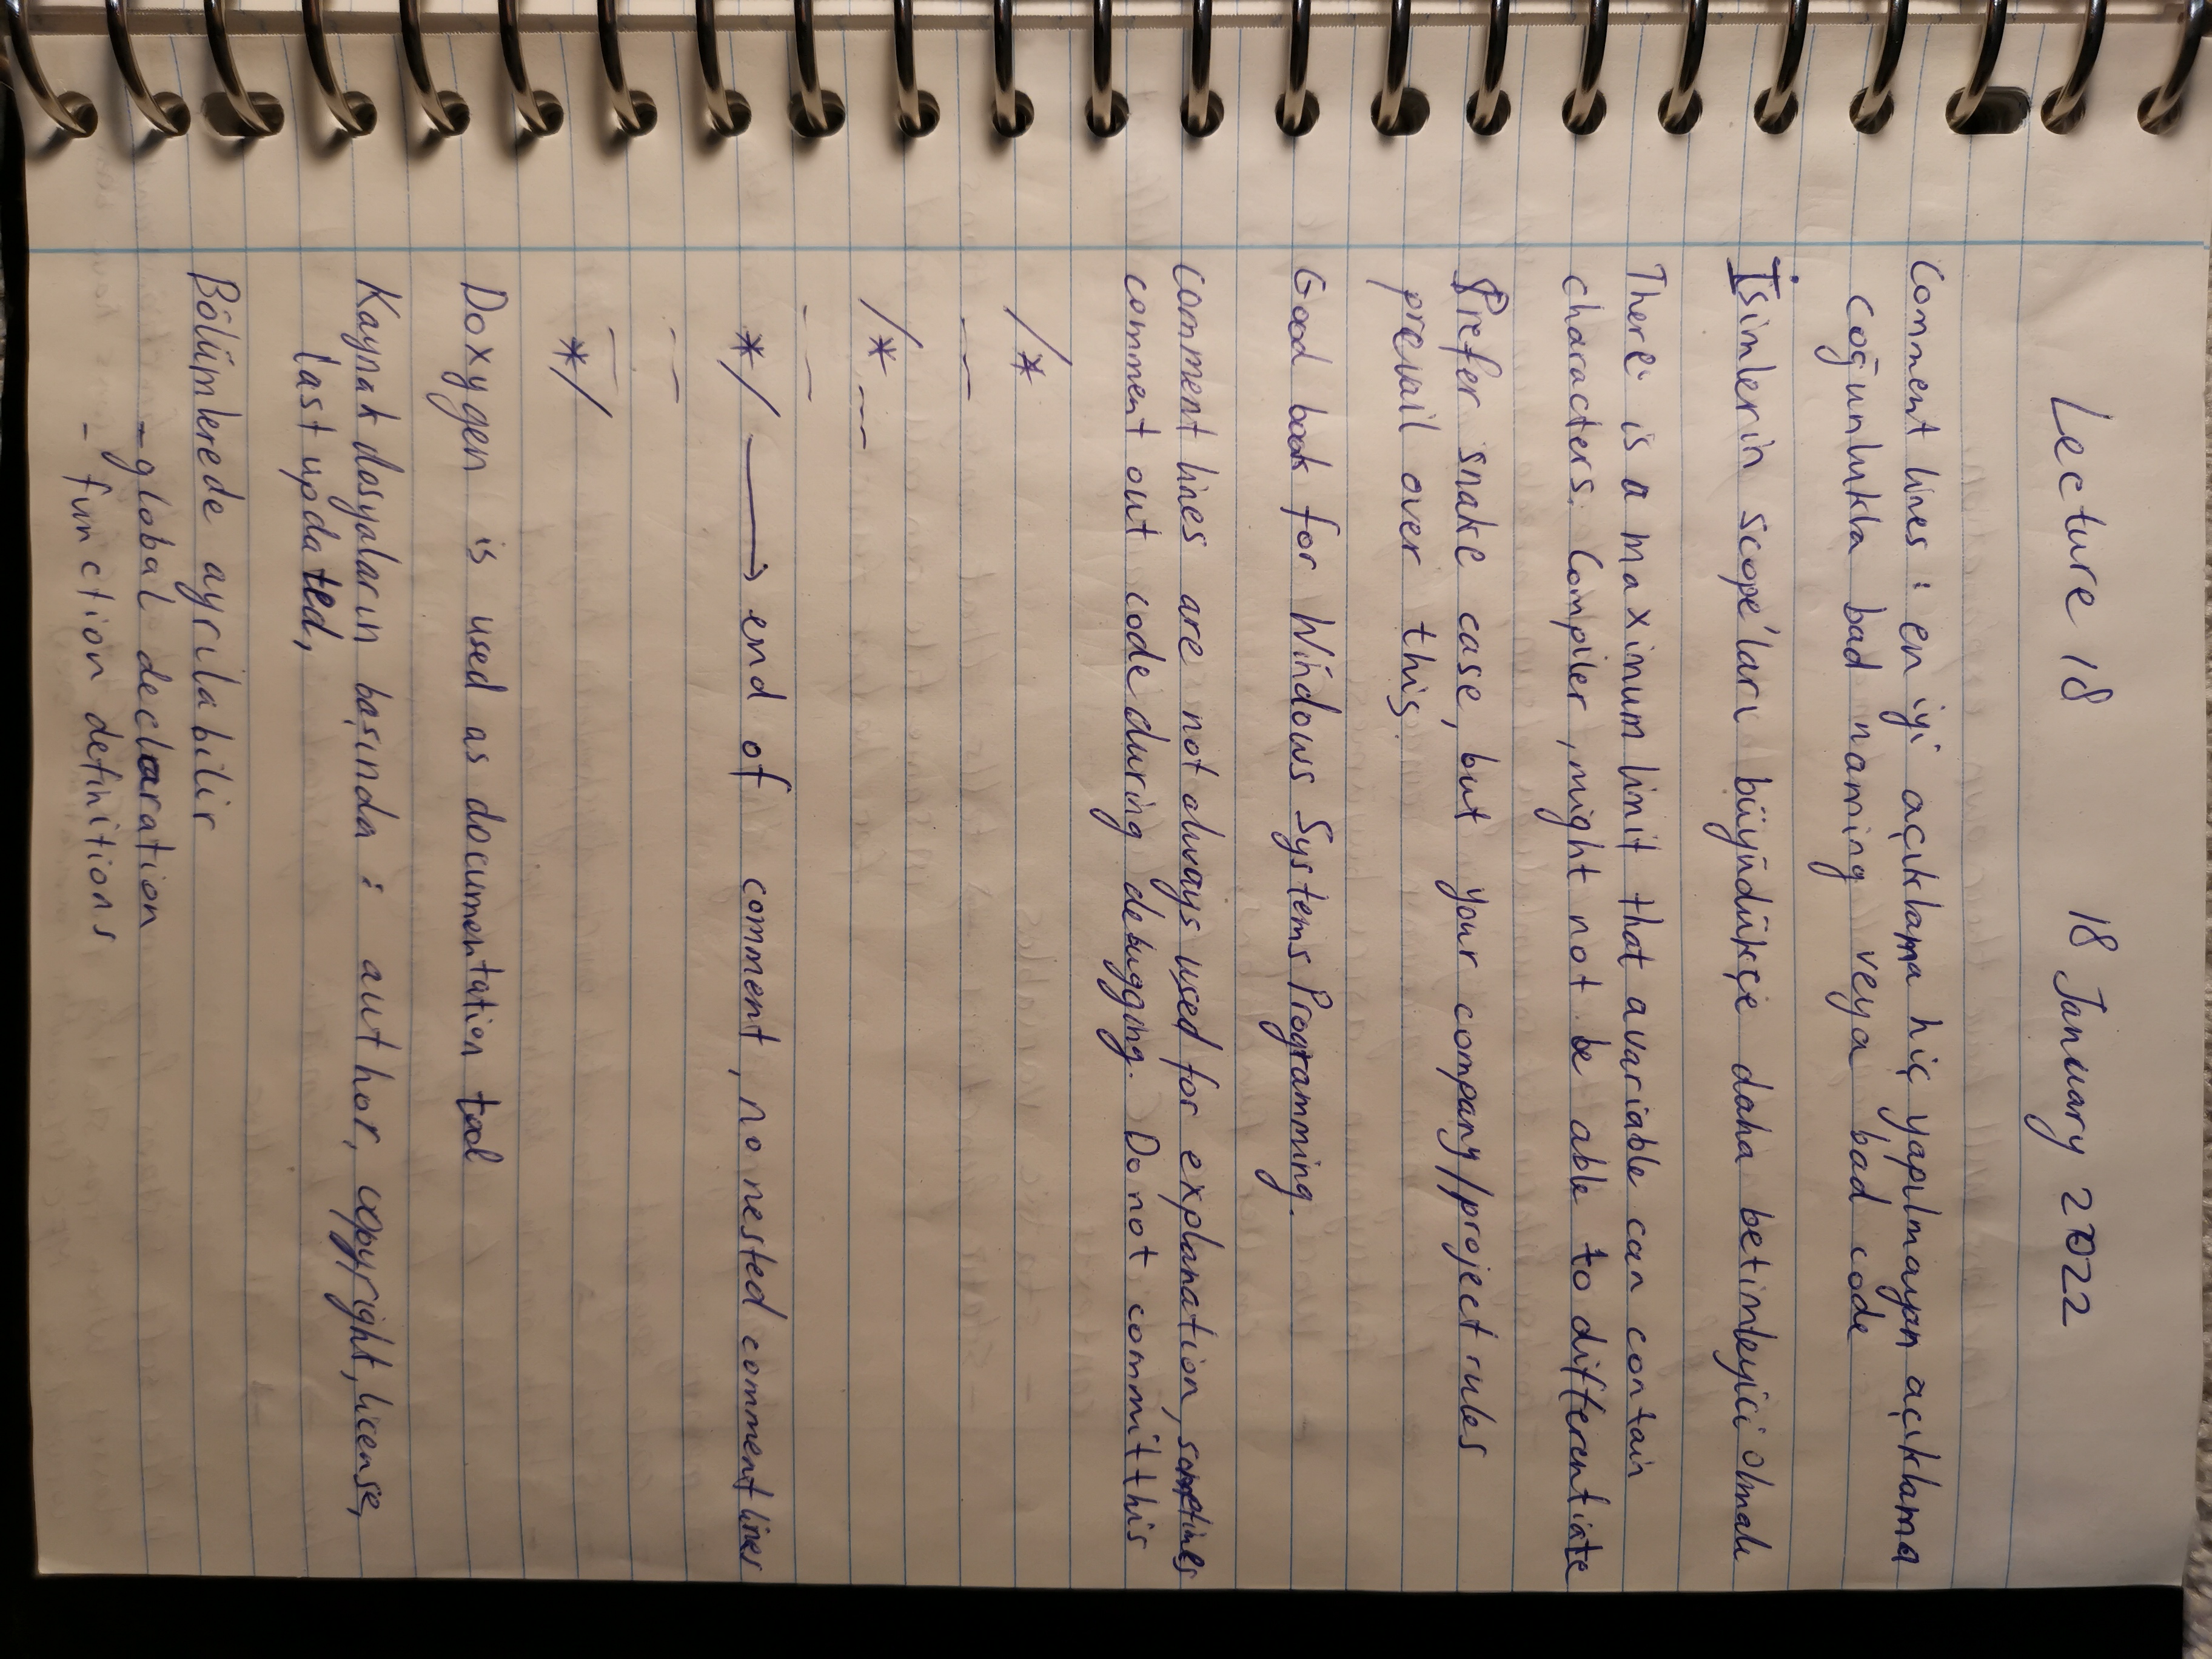 Lecture 18 18 January 2022
Comment lines : en iyi açıklama hiç yapılmayan açıklama
coğunlukla bad naming veya bad code
İsimlerin scope'ları büyüdükçe daha betimleyici olmalı
There is a maximum limit that a variable can contain
characters. Compiler, might not be able to differentiate
Prefer snake case, but your company/project rules
prevail over this.
Good book for Windows Systems Programming.
comment lines are not always used for explanation, sometimes
comment out code during debugging. Do not commit this
/*
/*
*/ → end of comment, no nested comment lines
*/
Doxygen is used as documentation tool
Kaynak dosyaların başında : author, copyright, license,
last updated,
Bölümlerede ayrılabilir
- global declaration
- function definitions